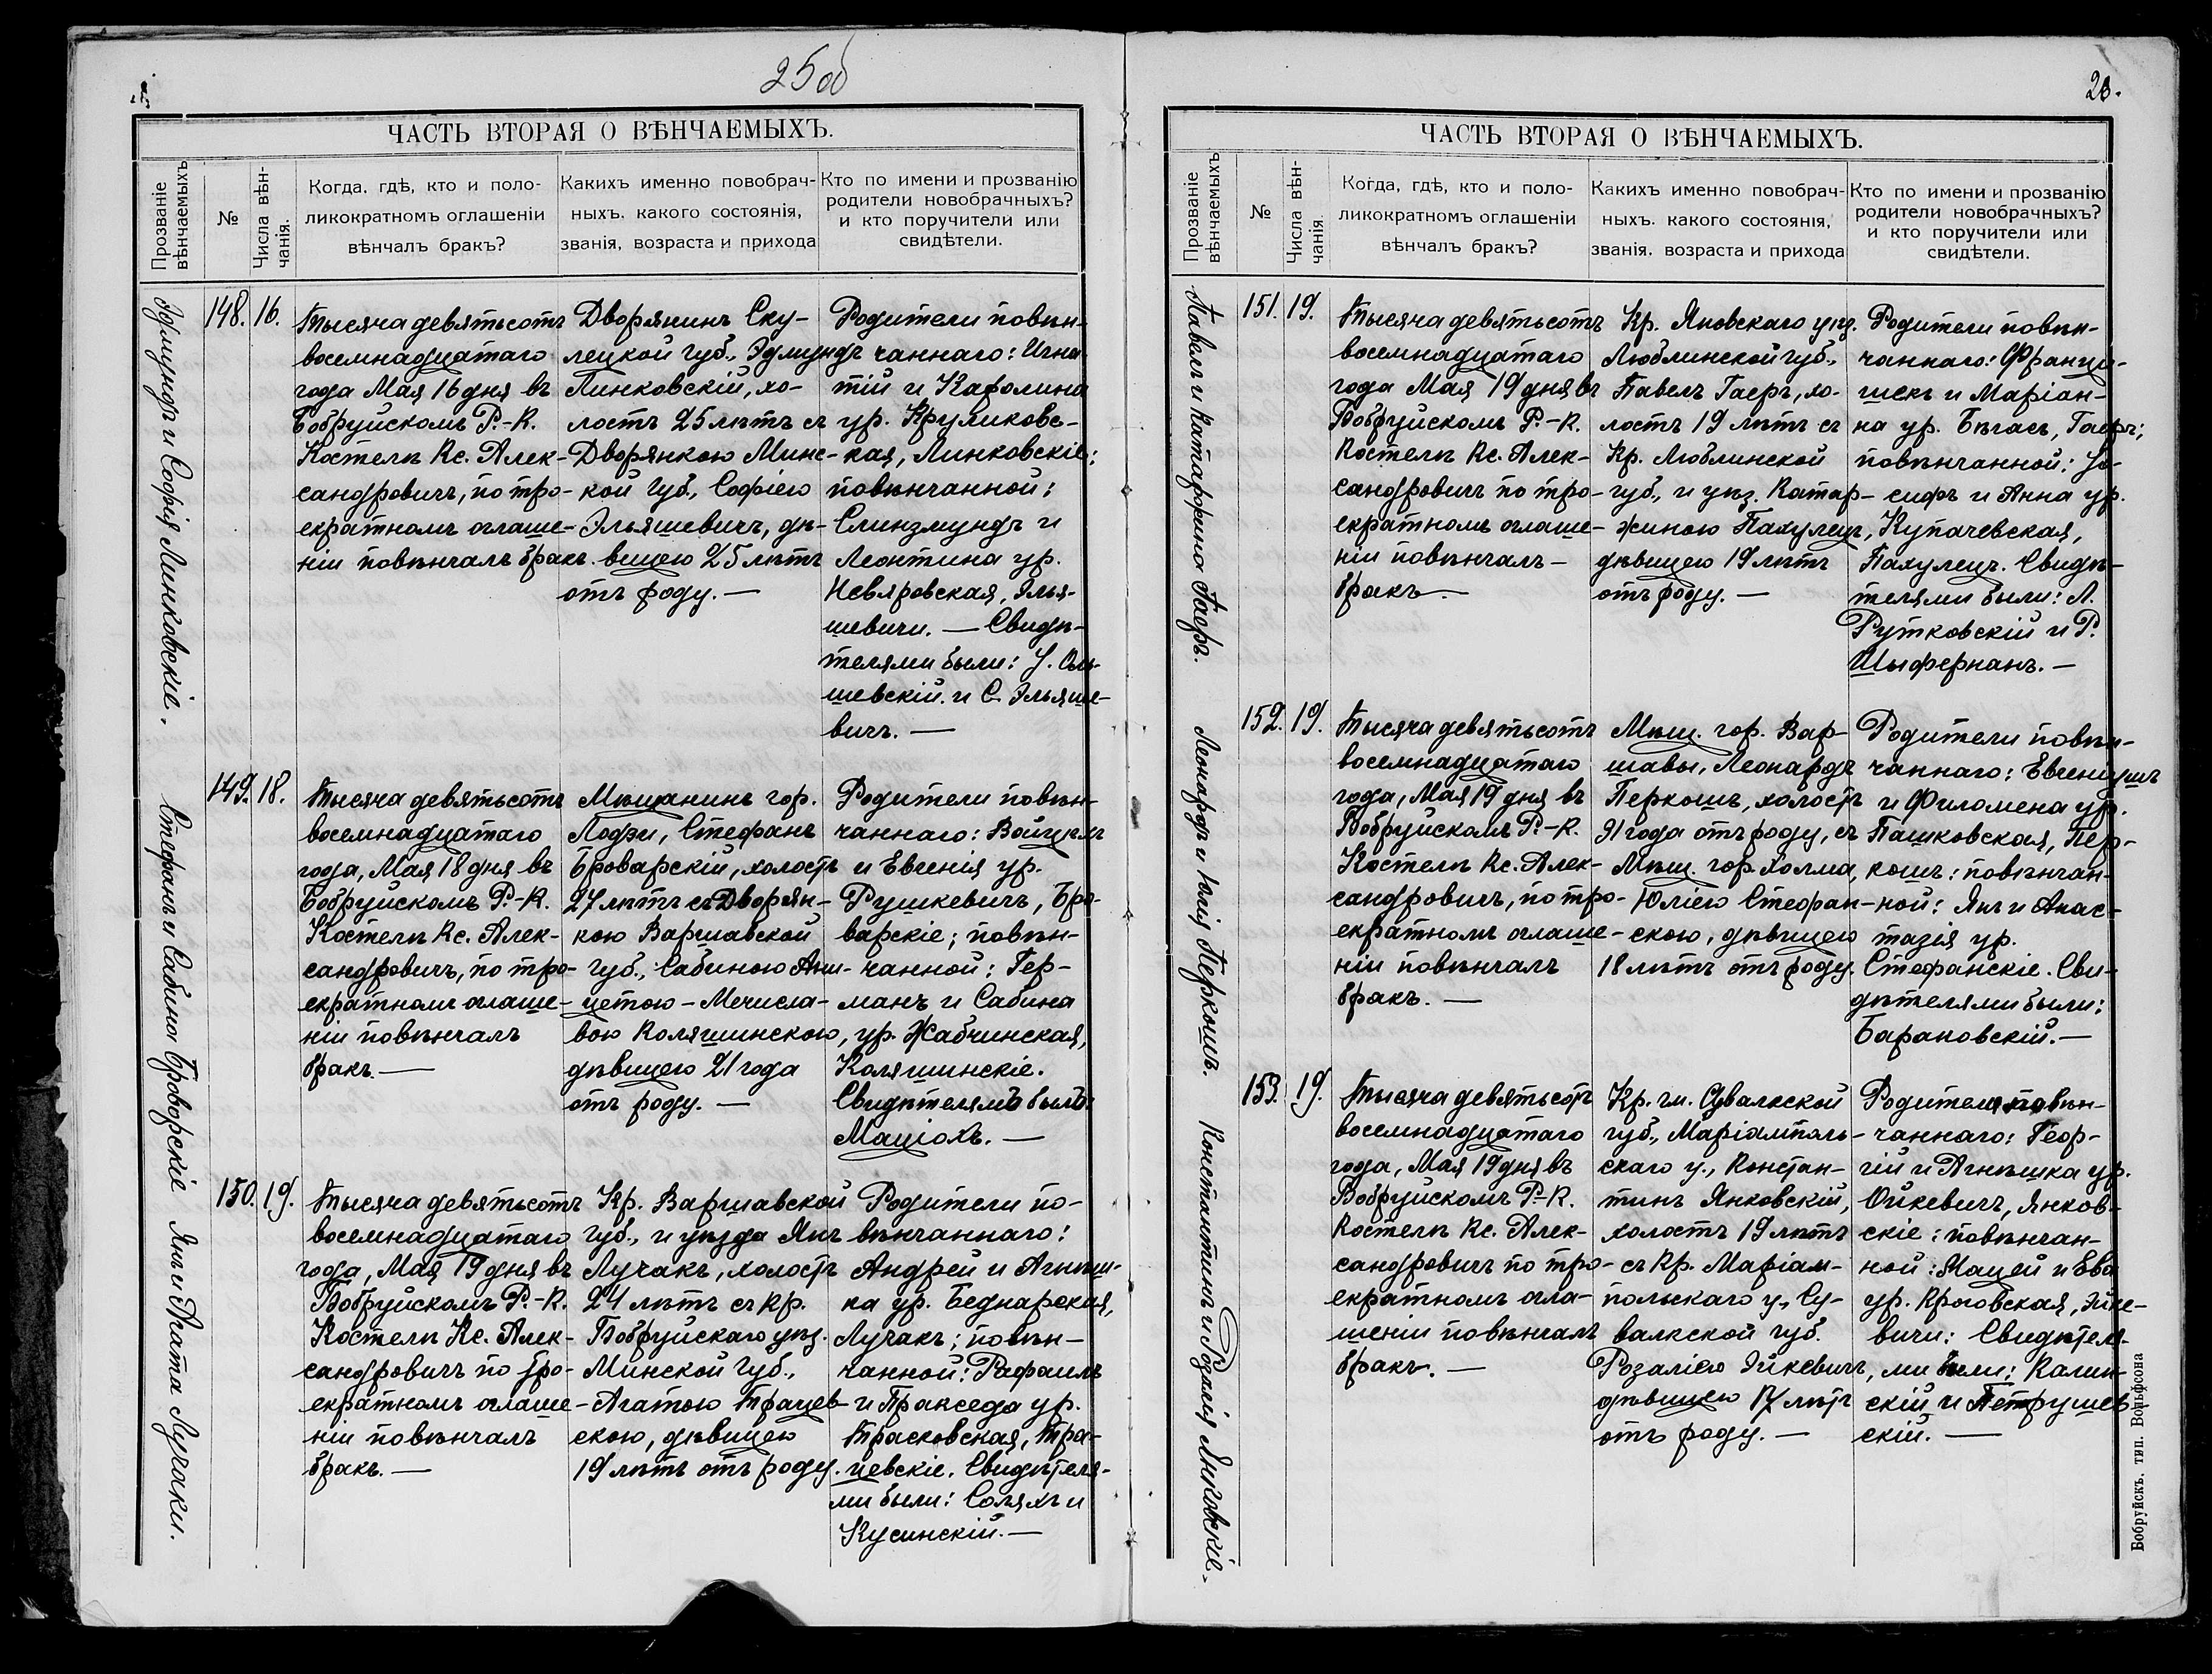 25об
ЧАСТЬ ВТОРАЯ О ВѢНЧАЕМЫХЪ.
Прозваніе
вѣнчаемыхъ
№
Числа вѣн-
чанія.
Когда, гдѣ, кто и поло-
ликократномъ оглашеніи
вѣнчалъ бракъ?
Какихъ именно повобрач-
ныхъ, какого состоянія,
званія, возраста и прихода
Кто по имени и прозванію
родители новобрачныхъ?
и кто поручители или
свидѣтели.
Эдмундъ и Софія Линковскіе.
148. 16.
Тысяча девятьсотъ
восемнадцатаго
года Мая 16 дня въ
Бобруйскомъ Р.-К.
Костелѣ Кс. Алек-
сандровичъ, по тро-
екратномъ оглаше-
ніи повѣнчалъ бракъ.
Дворянинъ Ску-
лецкой губ., Эдмундъ
Линковскій, хо-
лостъ 25 лѣтъ съ
Дворянкою Минс-
кой губ., Софіею
Эльяшевичъ, дѣ-
вицею 25 лѣтъ
отъ роду. —
Родители повѣн-
чаннаго: Игна-
тій и Каролина
ур. Круликовс-
кая, Линковскіе;
повѣнчанной:
Слинзмундъ и
Леонтина ур.
Невяровская, Элья-
шевичи. — Свидѣ-
телями были: У. Оль-
шевскій и С. Эльяше-
вичъ. —
Стефанъ и Сабина Броварскіе
149. 18.
Тысяча девятьсотъ
восемнадцатаго
года, Мая 18 дня въ
Бобруйскомъ Р.-К.
Костелѣ Кс. Алек-
сандровичъ, по тро-
екратномъ оглаше-
ніи повѣнчалъ
бракъ. —
Мѣщанинъ гор.
Лодзи, Стефанъ
Броварскій, холостъ
27 лѣтъ съ Дворян-
кою Варшавской
губ., Сабиною Ани-
цетою - Мечисла-
вою Коляшинскою,
дѣвицею 21 года
отъ роду. —
Родители повѣн-
чаннаго: Войцѣхъ
и Евгенія ур.
Рушкевичъ, Бро-
варскіе; повѣн-
чанной: Гер-
манъ и Сабина
ур. Жабчинская,
Коляшинскіе.
Свидѣтелямъ былъ:
Маціохъ. —
Янъ и Агата Лучаки.
150. 19.
Тысяча девятьсотъ
восемнадцатаго
года, Мая 19 дня въ
Бобруйскомъ Р.-К.
Костелѣ Кс. Алек-
сандровичъ по тро-
екратномъ оглаше-
ніи повѣнчалъ
бракъ. —
Кр. Варшавской
губ., и уѣзда Янъ
Лучакъ, холостъ
24 лѣтъ съ кр.
Бобруйскаго уѣз.
Минской губ.,
Агатою Трацев-
скою, дѣвицею
19 лѣтъ отъ роду.
Родители по-
вѣнчаннаго:
Андрей и Агнѣш-
ка ур. Беднарская,
Лучакъ; повѣн-
чанной: Рафаилъ
и Праксeда ур.
Трасковская, Тра-
цевскіе. Свидѣтеля-
ми были: Соляхъ и
Кусинскій. —
ЧАСТЬ ВТОРАЯ О ВѢНЧАЕМЫХЪ.
Прозваніе
вѣнчаемыхъ
№
Числа вѣн-
чанія
Когда, гдѣ, кто и поло-
ликократномъ оглашеніи
вѣнчалъ бракъ?
Какихъ именно повобрач-
ныхъ. какого состоянія,
званія, возраста и прихода
Кто по имени и прозванію
родители новобрачныхъ?
и кто поручители или
свидѣтели.
Павелъ и Катаржина Гаеръ.
151. 19.
Тысяча девятьсотъ
восемнадцатаго
года Мая 19 дня въ
Бобруйскомъ Р.-К.
Костелѣ Кс. Алек-
сандровичъ по тро-
екратномъ оглаше-
ніи повѣнчалъ —
бракъ. —
Кр. Яновскаго уѣз.
Люблинской губ.,
Павелъ Гаеръ, хо-
лостъ 19 лѣтъ съ
Кр. Люблинской
губ., и уѣз. Катар-
жиною Пахулецъ,
дѣвицею 19 лѣтъ
отъ роду. —
Родители повѣн-
чаннаго: Франци-
шекъ и Маріан-
на ур. Бѣгасъ, Гаеръ;
повѣнчанной: Іо-
сифъ и Анна ур.
Купачевская,
Пахулецъ. Свидѣ-
телями были: Л.
Рутковскій и Р.
Шыферманъ. —
Леонардъ и Юлія Перкошъ.
152. 19.
Тысяча девятьсотъ
восемнадцатаго
года, Мая 19 дня въ
Бобруйскомъ Р.-К.
Костелѣ Кс. Алек-
сандровичъ, по тро-
екратномъ оглаше-
ніи повѣнчалъ
бракъ. —
Мѣщ. гор. Вар-
шавы, Леонардъ
Перкошъ, холостъ
21 года отъ роду, съ
Мѣщ. гор. Холма,
Юліею Стефан-
скою, дѣвицею
18 лѣтъ отъ роду.
Родители повѣн-
чаннаго: Евгеніушъ
и Филомена ур.
Пашковская, Пер-
кошъ; повѣнчан-
ной: Янъ и Анас-
тазія ур.
Стефанскіе. Сви-
дѣтелями были:
Барановскій. —
Константинъ и Розалія Янковскіе.
153. 19.
Тысяча девятьсотъ
восемнадцатаго
года, Мая 19 дня въ
Бобруйскомъ Р-К.
Костелѣ Кс. Алек-
сандровичъ по тро-
екратномъ огла-
шеніи повѣнчалъ
бракъ. —
Кр. гм. Сувалкской
губ., Маріамполь-
скаго у., Констан-
тинъ Янковскій,
холостъ 19 лѣтъ
съ Кр. Маріам-
польскаго у., Су-
валкской губ.
Розаліею Эйкевичъ,
дѣвицею 17 лѣтъ
отъ роду. —
Родители повѣн-
чаннаго: Геор-
гій и Агнѣшка ур.
Юйкевичъ, Янков-
скіе; повѣнчан-
ной: Мацей и Ева
ур. Кроговская, Эйке-
вичи: Свидѣтеля-
ми были: Калин-
скій и Петрушев-
скій. —
Бобруйскъ, тип. Вольфсона